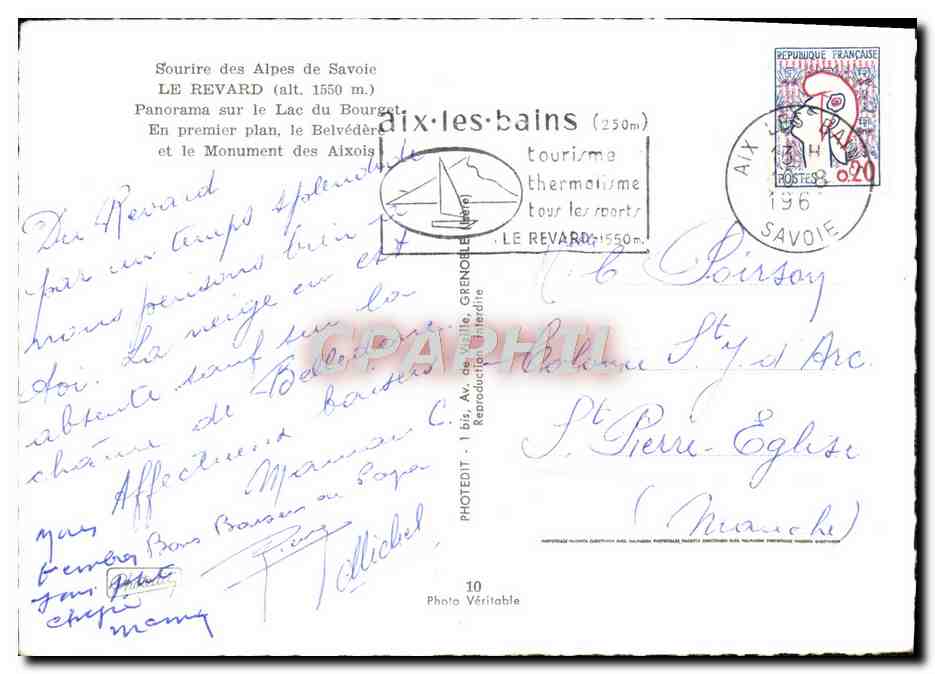 Sourire des Alpes de Savoie
LE REVARD (alt. 1550 m.)
Panorama sur le Lac du Bourget
En premier plan, le Belvédère
et le Monument des Aixois
aix·les·bains (250m)
tourisme
thermalisme
tous les sports
LE REVARD 1550m.
REPUBLIQUE FRANÇAISE
POSTES 0,20
AIX LES BAINS
13 H
8
196
SAVOIE
Du Revard
par un temps splendide
nous pensons bien à
toi. La neige en est
absente sauf sur la
chaîne de Belledonne.
Affectueux baisers
Maman C.
Bons Baisers de Papa
Pierre
Michel
CPAPHIL
PHOTEDIT - 1 bis, Av. de Vizille, GRENOBLE (Isère)
Reproduction Interdite
Poirson
Colonie St J. d'Arc
St Pierre-Eglise
(Manche)
10
Photo Véritable